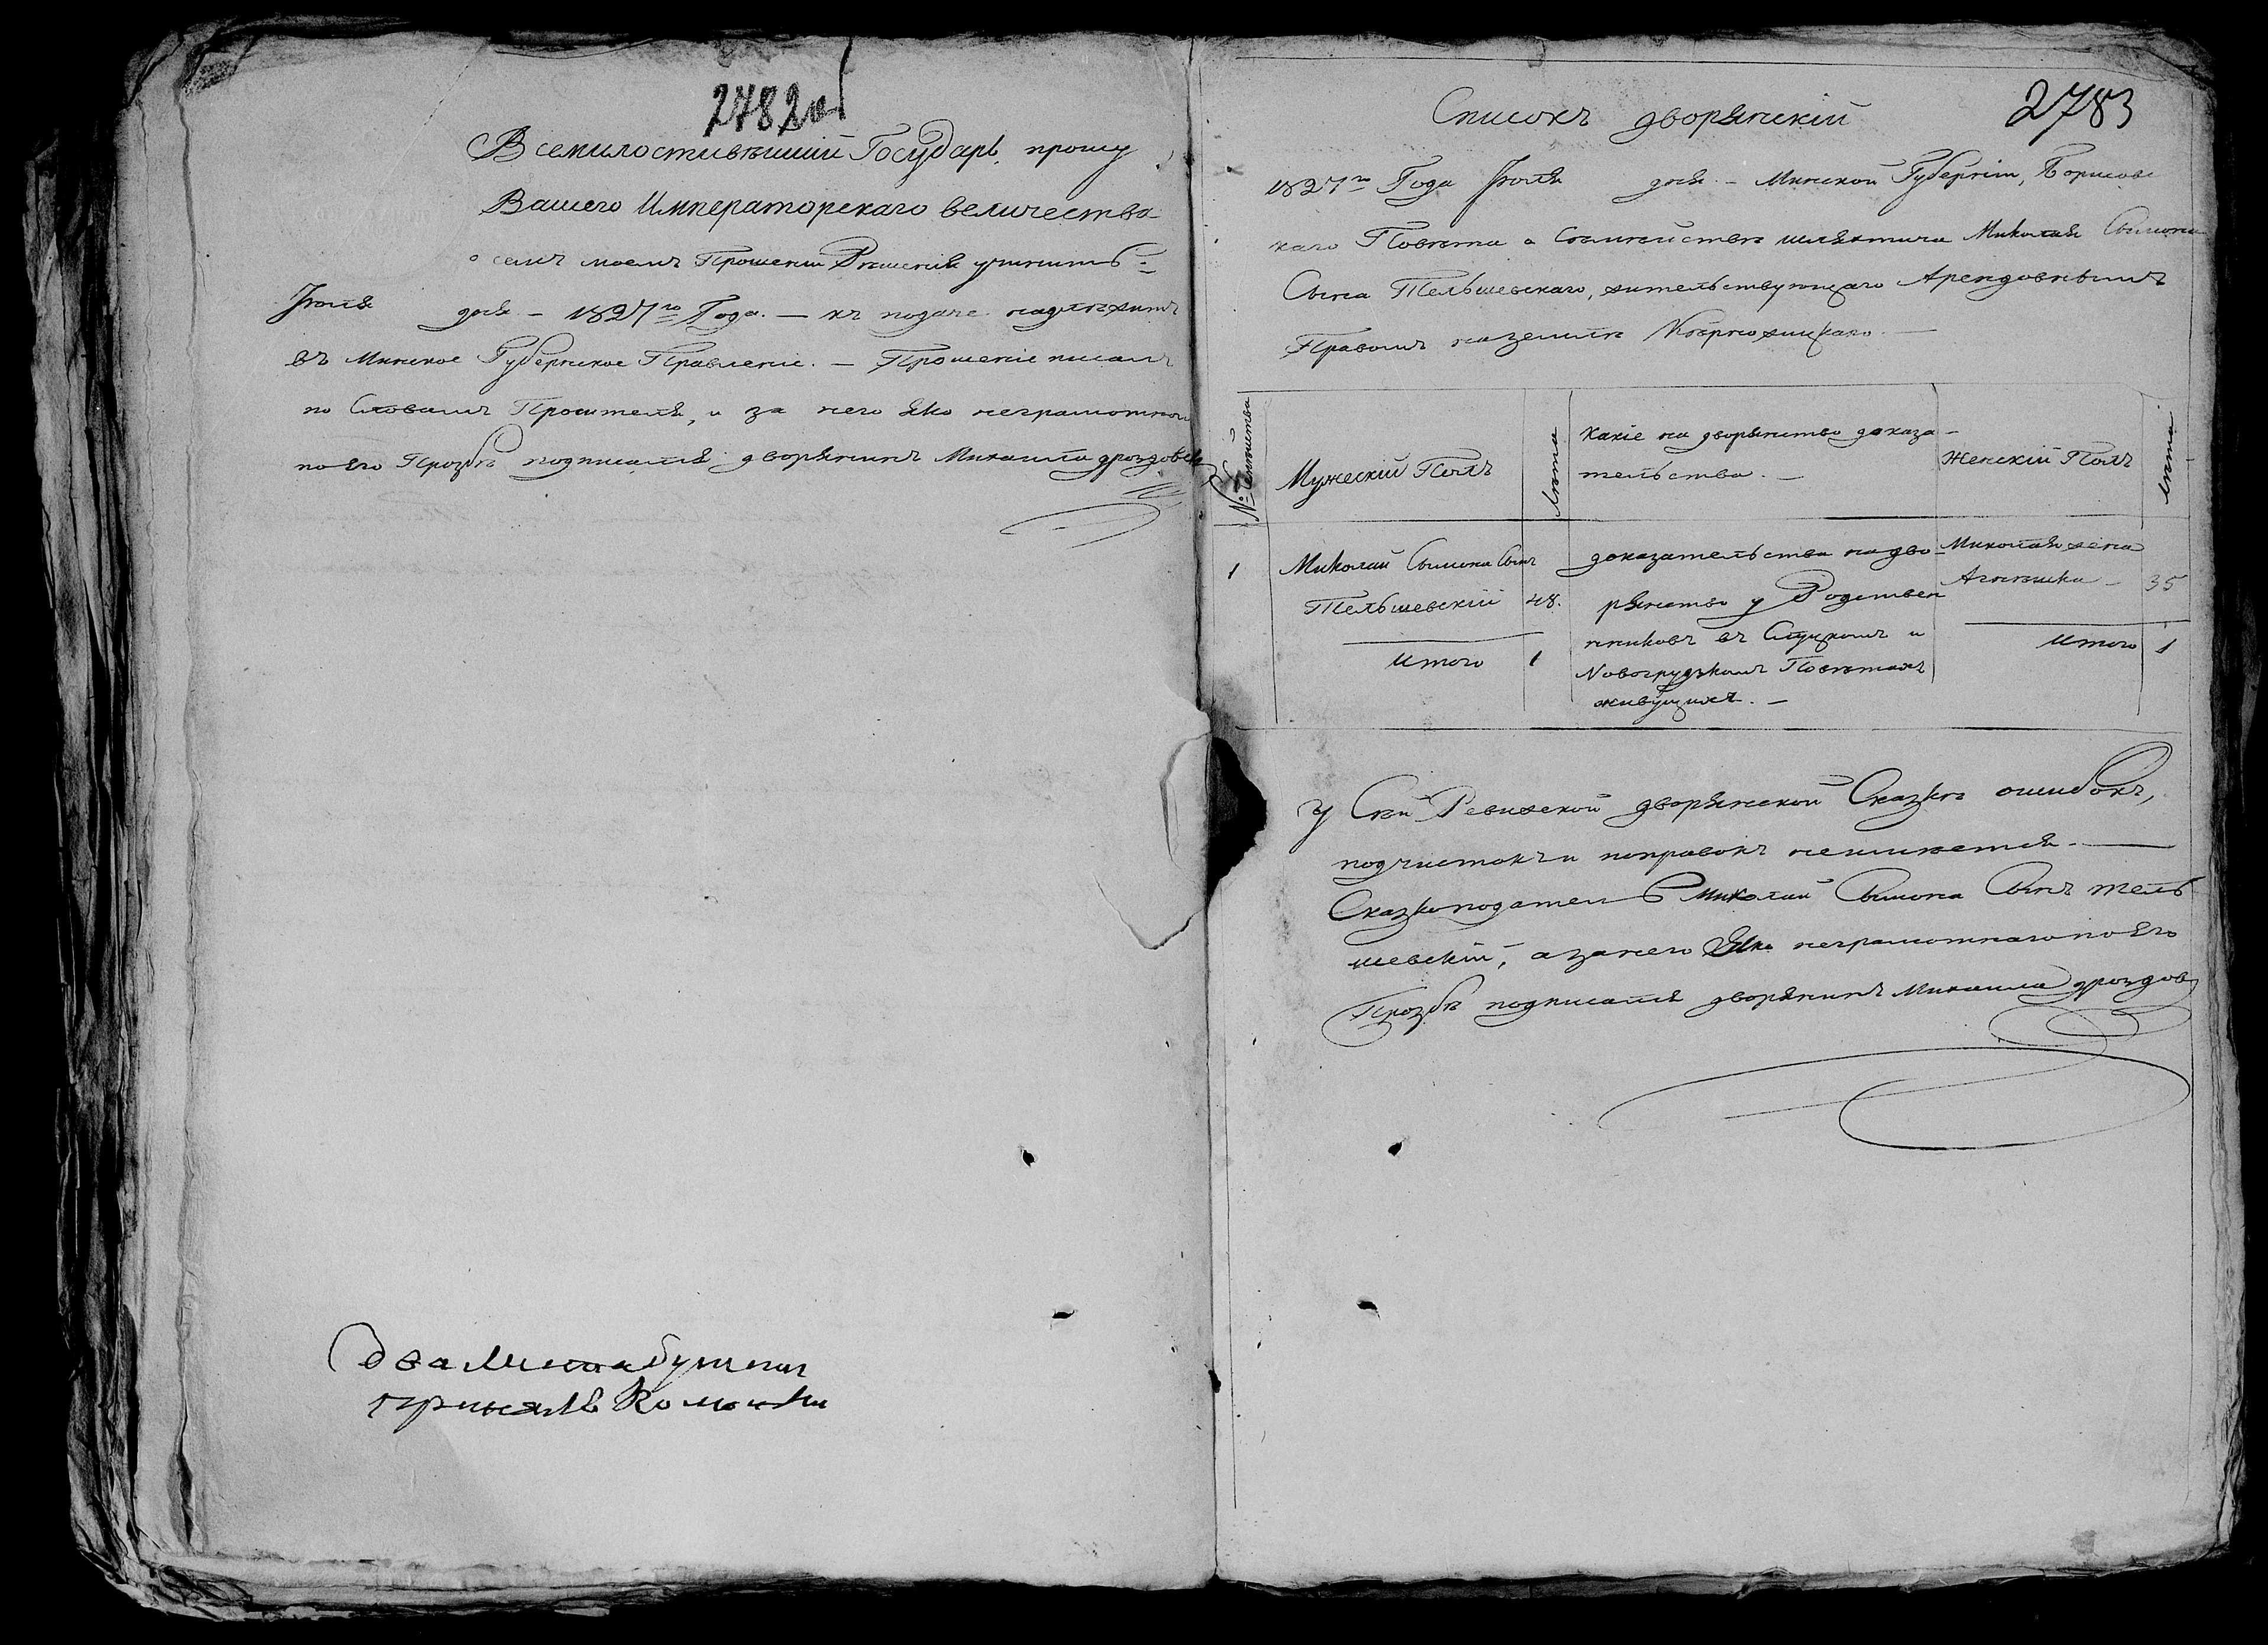 2782об
Всемилостивѣйшій Государь, прошу
Вашего Императорскаго величества
о семъ моемъ Прошении Рѣшеніи учинить:
Іюля дня – 1827го Года. – къ подаче надлежитъ
въ Минское Губернское Правленіе. – Прошеніе писалъ
по Словамъ Просителя, и за него яко неграмотного
по его Прозбѣ подписался дворянинъ Михаила дроздовск
два листа бумаги
принялъ
2783
Списокъ дворянскій
1827го Года Іюля дня – Минской Губерніи, Борисовс
каго Повѣта о Семѣйствѣ шляхтича Миколая Сымона
Сына Тельшевскаго, жительствующаго Арендовнымъ
Правомъ на земли
№ Семѣйства
Мужескій Полъ
лѣта
какіе на дворянство доказа–
тельства. –
Женскій Полъ
лѣта
1
Миколай Сымона Сынъ
Тельшевскій
48.
Итого
1
доказательства на дво
рянство у Родствен
нниковъ въ Слуцкомъ и
Новогрудзкомъ Повѣтахъ
живущихъ. –
Миколая жена
Агнѣшка –
35
Итого
1
У Сей Ревижской дворянской Сказкѣ ошибокъ,
подчистокъ и поправокъ неимѣется. –
Сказкоподатель Миколай Сымона Сынъ тель
шевскій, а за него Яко неграмотнаго по Его
Прозбѣ подписался дворянинъ Михаила дроздов